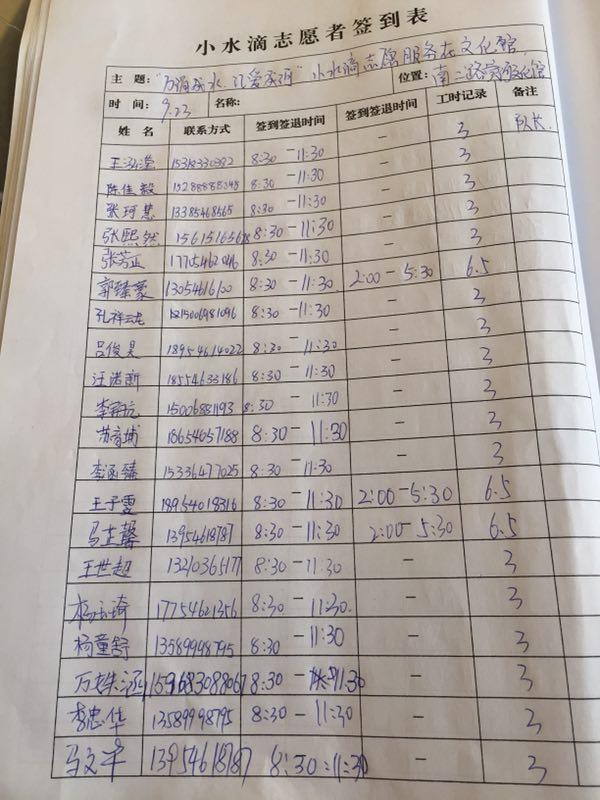 小水滴志愿者签到表
主 题： "万滴成水，汇爱成河" 小水滴志愿服务在文化馆 位置： 南二路
时 间： 9.23 名称：
姓 名 联系方式 签到签退时间 签到签退时间 工时记录 备注
王泓滢 8:30 -11:30 - 3 队长
陈佳毅 8:30 -11:30 - 3
张珂慧 13385468565 8:30 -11:30 - 3
张熙然 8:30 -11:30 - 3
张芳正 8:30 -11:30 - 3
郭臻豪 8:30 -11:30 2:00 - 5:30 6.5
孔祥 8:30 -11:30 - 3
吕俊昊 18954614022 8:30 - 11:30 - 3
汪诺 18554633186 8:30 - 11:30 - 3
李 15006881193 8:30 - 11:30 - 3
苏 18654657188 8:30 - 11:30 - 3
李函臻 15336477025 8:30 - 11:30 - 3
王子雯 18954019316 8:30 - 11:30 2:00-5:30 6.5
马芷馨 13954618787 8:30 - 11:30 2:00-5:30 6.5
王世超 13210365177 8:30 -11:30 - 3
杨 琦 17754621356 8:30 - 11:30. - 3
杨童舒 13589998795 8:30 -11:30 - 3
万 涵 8:30 - 11:30 - 3
李忠华 13589998795 8:30 - 11:30 - 3
马文平 13954618787 8:30-11:30 - 3